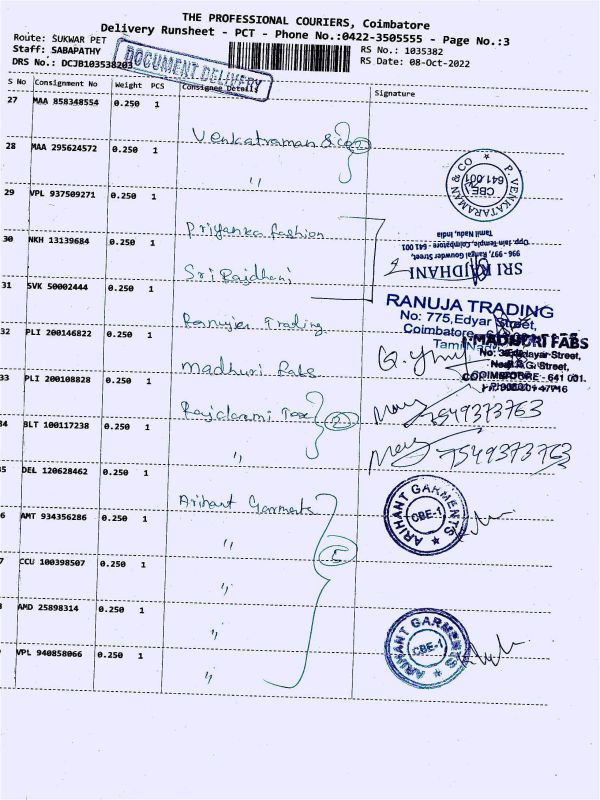 THE PROFESSIONAL COURIERS, Coimbatore
Delivery Runsheet - PCT - Phone No.:0422-3505555 - Page No.:3
Route: SUKWAR PET
Staff: SABAPATHY
DRS No.: DCJB103538203
DOCUMENT DELIVERY
RS No.: 1035382
RS Date: 08-Oct-2022
S No Consignment No Weight PCS Consignee Details Signature
27 MAA 858348554 0.250 1
Venkatraman & Co 2
28 MAA 295624572 0.250 1
"
P. VENKATARAMAN & CO
CBE
641 001
29 VPL 937509271 0.250 1
Priyanka fashion
30 NKH 13139684 0.250 1
Sri Rajdhani
SRI RAJDHANI
996 - 997, Rangai Gowder Street,
Opp. Jain Temple, Coimbatore - 641 001
Tamil Nadu, India
31 SVK 50002444 0.250 1
Ranujia Trading
RANUJA TRADING
No: 775, Edyar Street,
Coimbatore
Tamil Nadu
32 PLI 200146822 0.250 1
Madhuri Fabs
MADHURI FABS
Street,
COIMBATORE - 641 001.
33 PLI 200108828 0.250 1
Rajclaxmi Tex 2
7549373763
34 BLT 100117238 0.250 1
"
7549373763
35 DEL 120628462 0.250 1
Arihant Garments
ARIHANT GARMENTS
CBE-1
6 AMT 934356286 0.250 1
"
5
7 CCU 100398507 0.250 1
"
AMD 25898314 0.250 1
"
ARIHANT GARMENTS
CBE-1
VPL 940858066 0.250 1
"